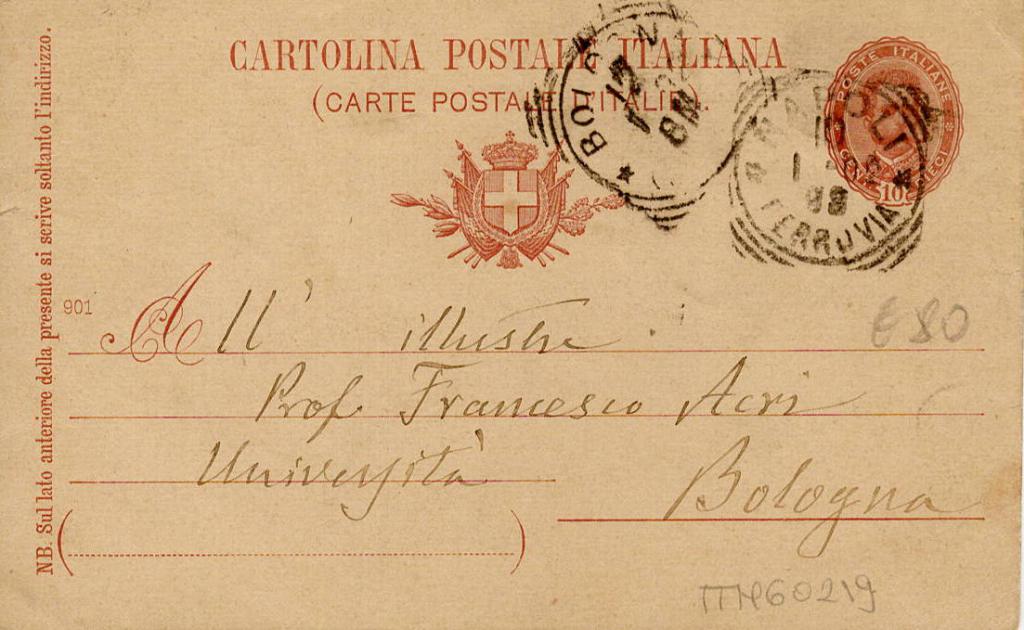 CARTOLINA POSTALE ITALIANA
(CARTE POSTALE D'ITALIE).
BOLOGNA
NAPOLI
FERROVIA
POSTE ITALIANE
10
NB. Sul lato anteriore della presente si scrive soltanto l'indirizzo.
901
All' illustre
€ 80
Prof Francesco Acri
Università
Bologna